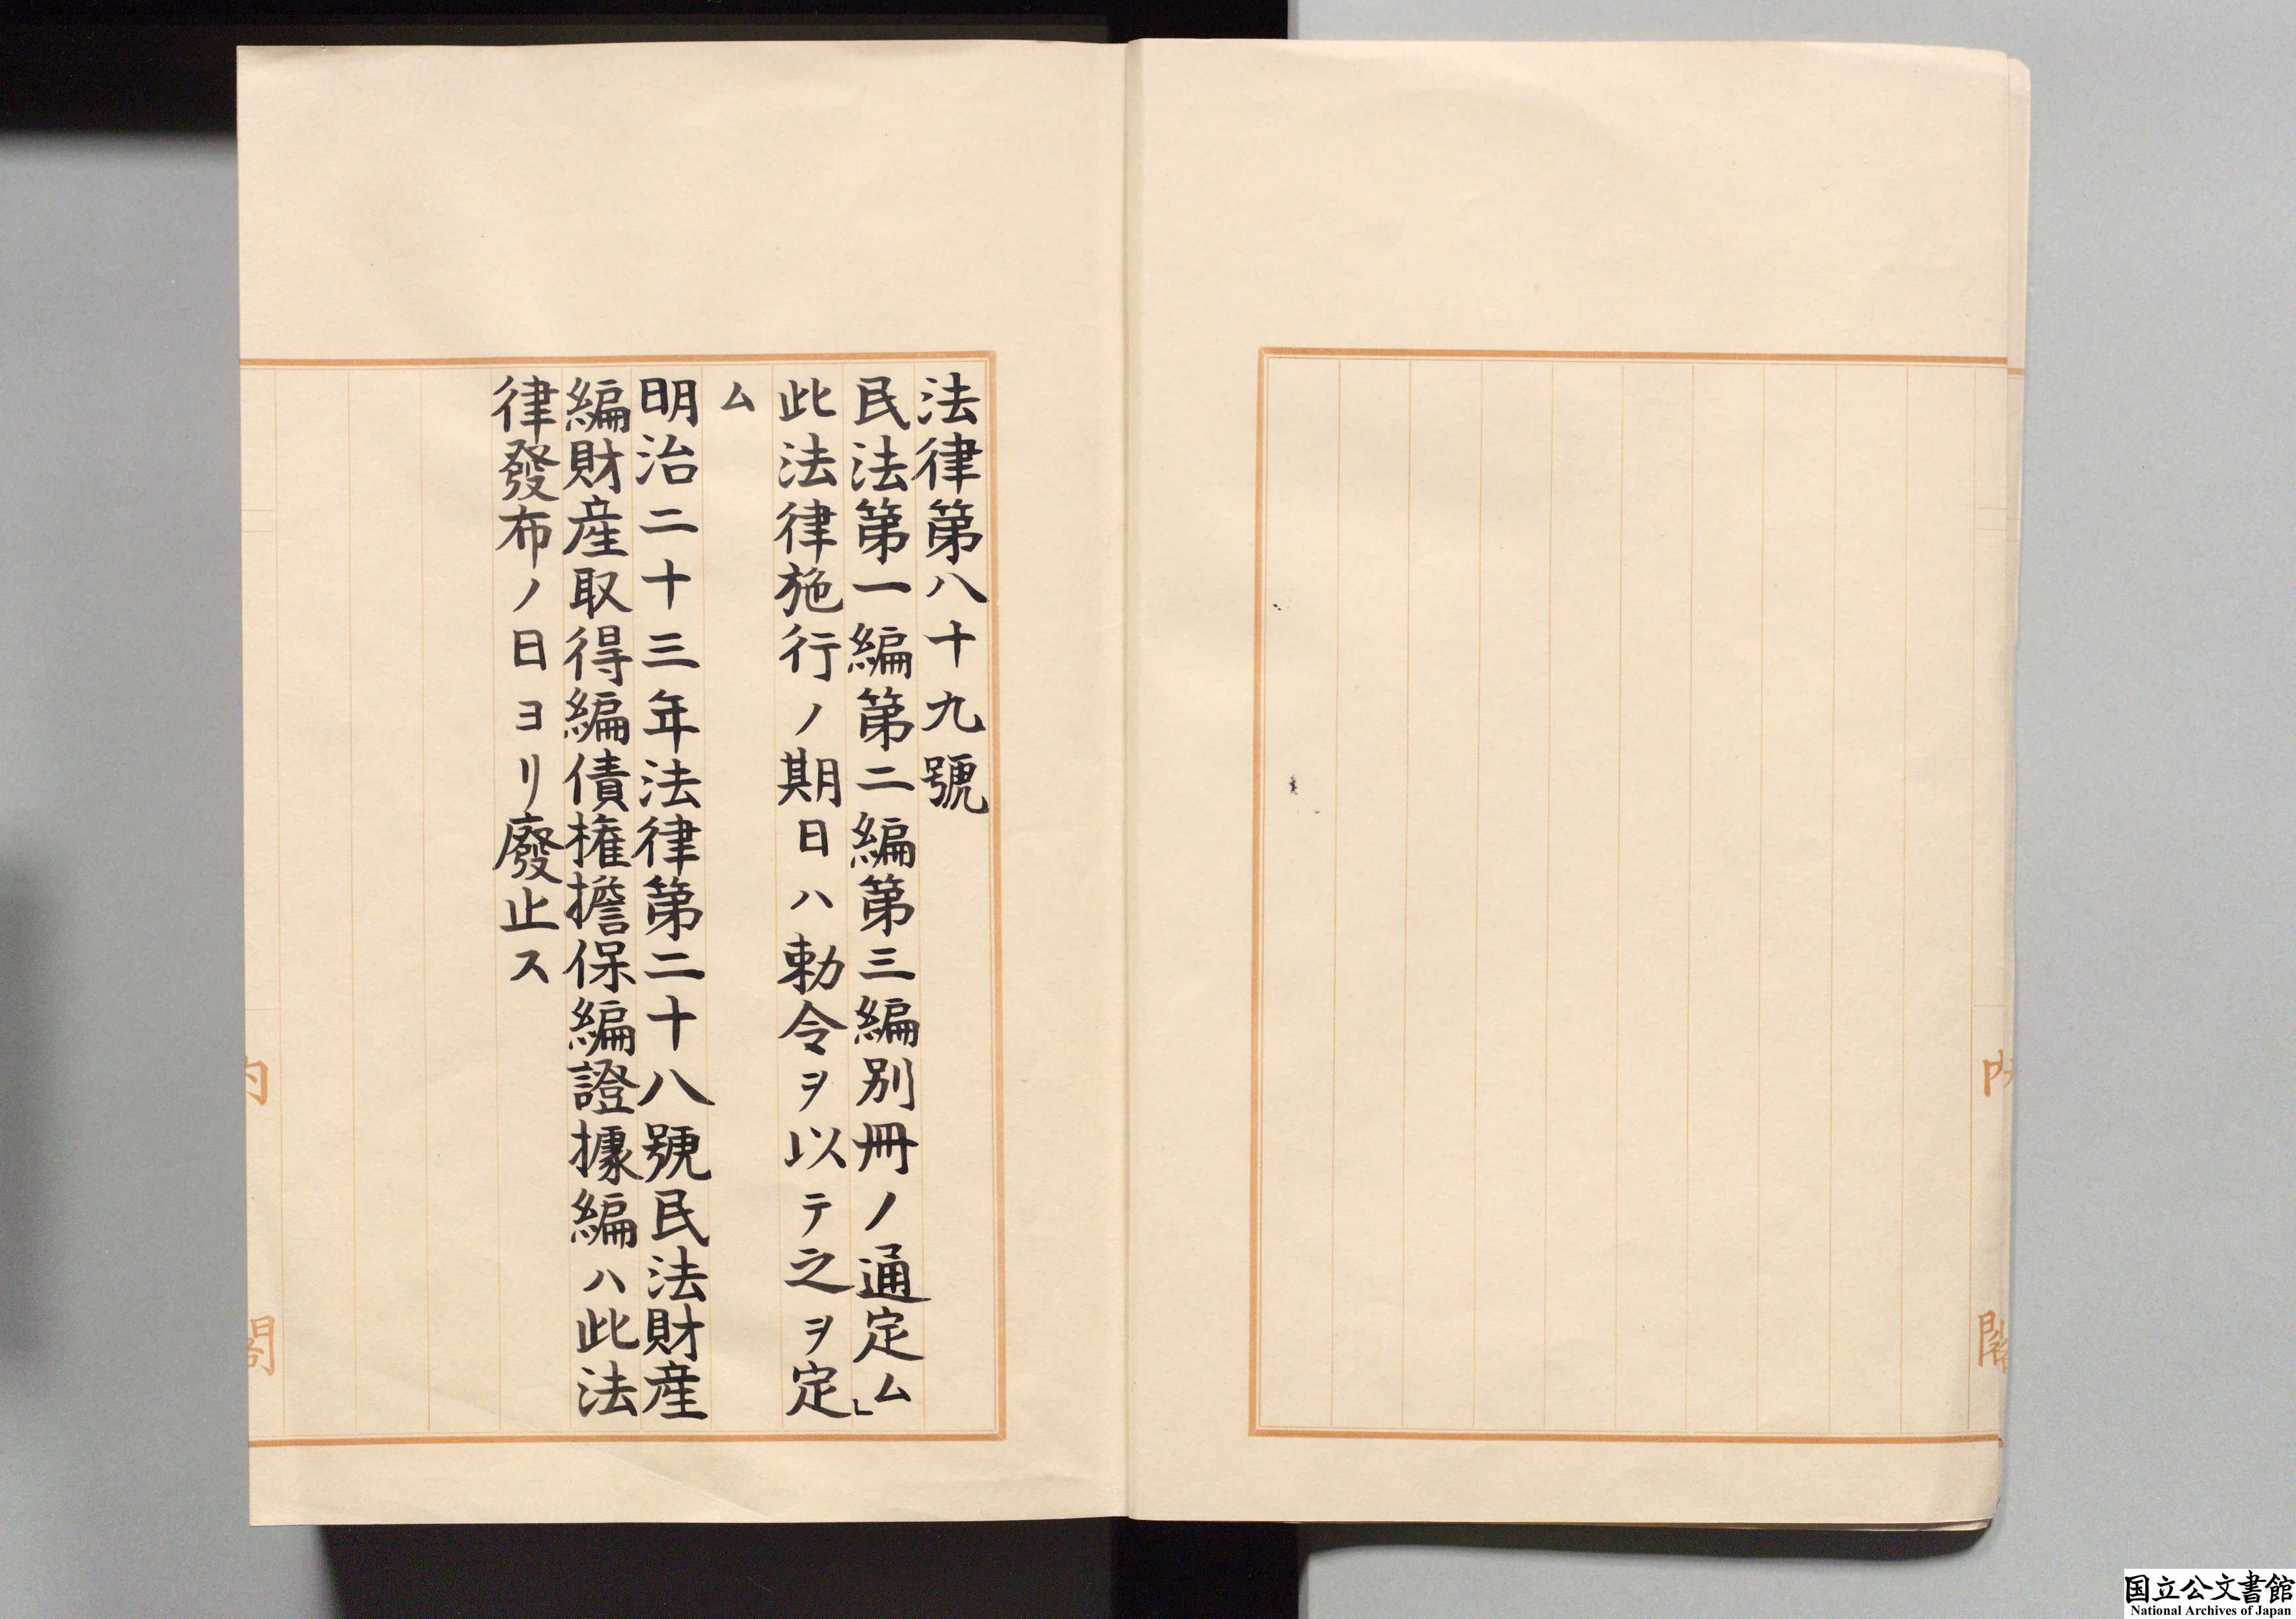 法律第八十九號
民法第一編第二編第三編別冊ノ通定ム」
此法律施行ノ期日ハ勅令ヲ以テ之ヲ定
ム
明治二十三年法律第二十八號民法財産
編財産取得編債權擔保編證據編ハ此法
律發布ノ日ヨリ廢止ス
内閣
内閣
国立公文書館
National Archives of Japan